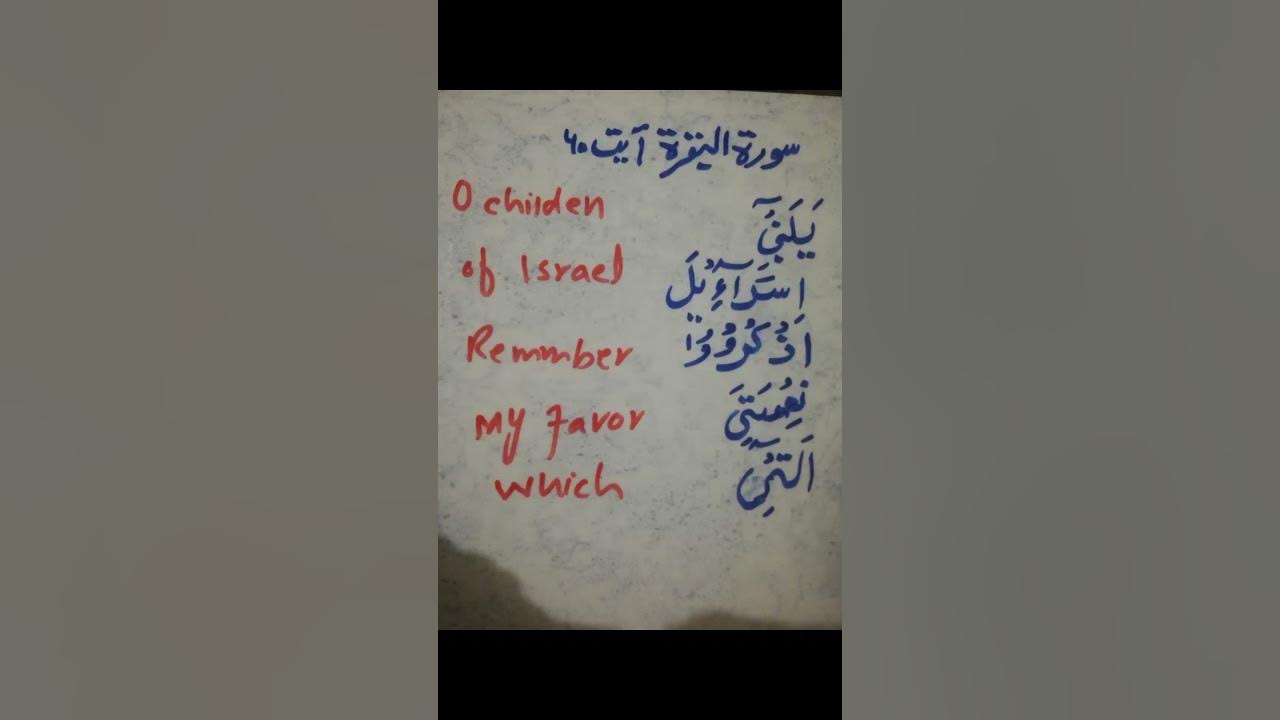 سورة البقرة آیت ۴۰
O childen يَبَنِىٓ
of Israel اِسۡرَآءِيۡلَ
Remmber اذۡكُرُوۡا
My Favor نِعۡمَتِىَ
which الَّتِىۡٓ